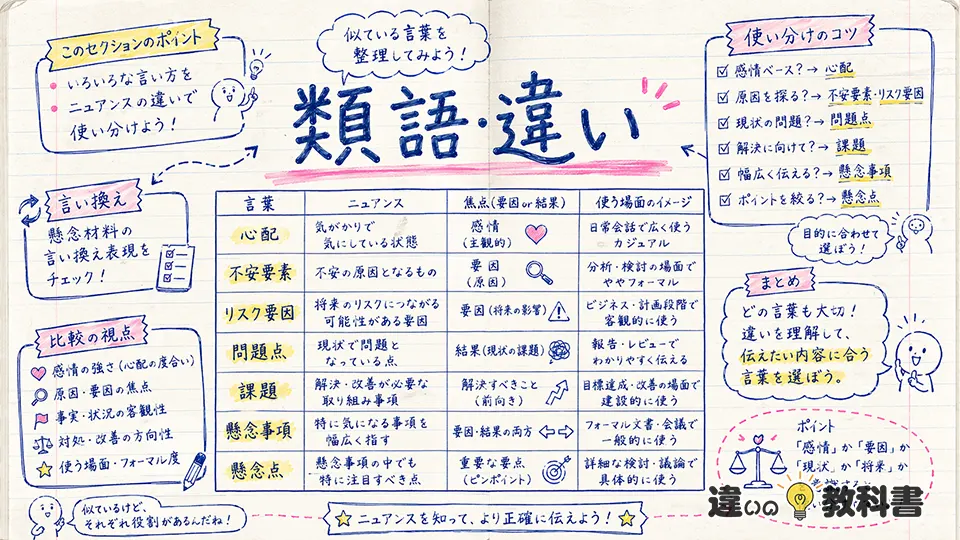 このセクションのポイント
いろいろな言い方を
ニュアンスの違いで
使い分けよう！
似ている言葉を
整理してみよう！
類語・違い
使い分けのコツ
感情ベース？→ 心配
原因を探る？→ 不安要素・リスク要因
現状の問題？→ 問題点
解決に向けて？→ 課題
幅広く伝える？→ 懸念事項
ポイントを絞る？→ 懸念点
目的に合わせて
選ぼう！
言い換え
懸念材料の
言い換え表現を
チェック！
比較の視点
感情の強さ（心配の度合い）
原因・要因の焦点
事実・状況の客観性
対処・改善の方向性
使う場面・フォーマル度
似ているけど、
それぞれ役割があるんだね！
言葉 ニュアンス 焦点（要因 or 結果） 使う場面のイメージ
心配 気がかりで 感情 日常会話で広く使う
気にしている状態 （主観的） カジュアル
不安要素 不安の原因となるもの 要因 分析・検討の場面で
（原因） ややフォーマル
リスク要因 将来のリスクにつながる 要因（将来の影響） ビジネス・計画段階で
可能性がある要因 客観的に使う
問題点 現状で問題と 結果（現状の課題） 報告・レビューで
なっている点 わかりやすく伝える
課題 解決・改善が必要な 解決すべきこと 目標達成・改善の場面で
取り組み事項 （前向き） 建設的に使う
懸念事項 特に気になる事項を 要因・結果の両方 フォーマル文書・会議で
幅広く指す 一般的に使う
懸念点 懸念事項の中でも 重要な要点 詳細な検討・議論で
特に注目すべき点 （ピンポイント） 具体的に使う
まとめ
どの言葉も大切！
違いを理解して、
伝えたい内容に合う
言葉を選ぼう。
ポイント
「感情」か「要因」か
「現状」か「将来」か
ニュアンスを知って、より正確に伝えよう！
違いの教科書